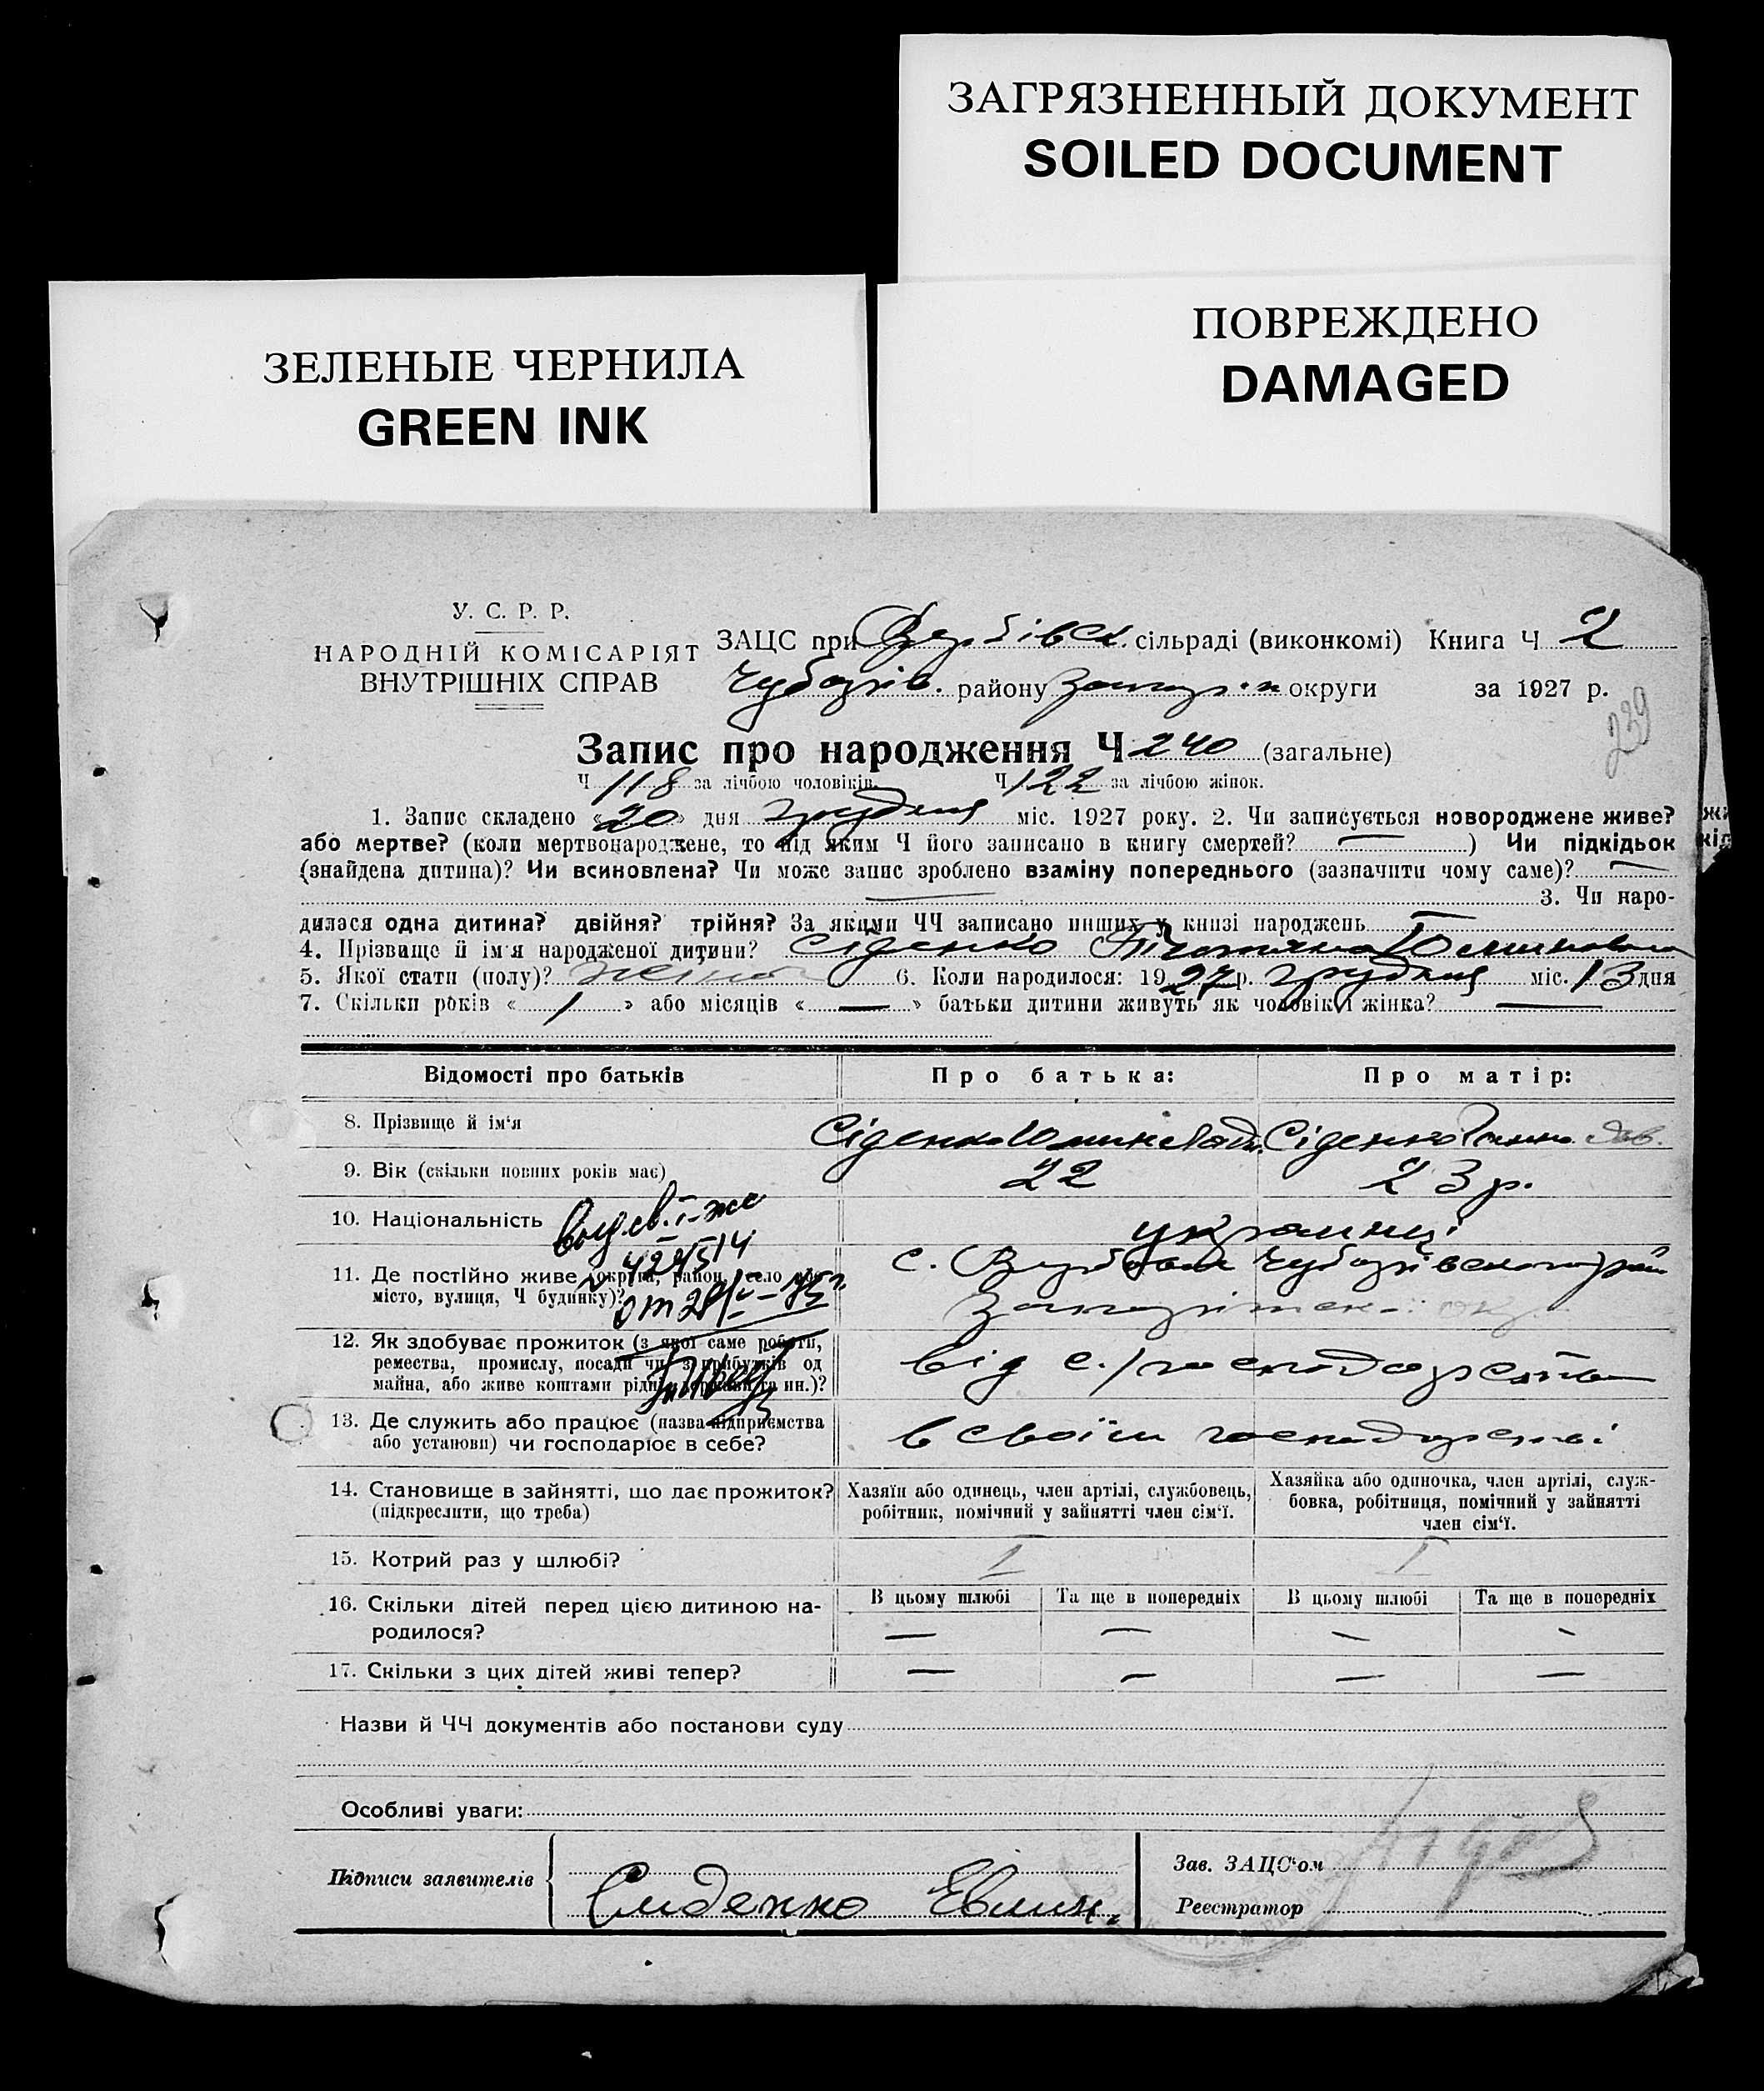 ЗАГРЯЗНЕННЫЙ ДОКУМЕНТ
SOILED DOCUMENT
ПОВРЕЖДЕНО
DAMAGED
ЗЕЛЕНЫЕ ЧЕРНИЛА
GREEN INK
У. С. Р. Р.
НАРОДНІЙ КОМІСАРІЯТ
ВНУТРІШНІХ СПРАВ
ЗАЦС при Вербівск. сільраді (виконкомі) Книга Ч 2
Чубарів. району Запоріз. округи за 1927 р.
239
Запис про народження Ч 240 (загальне)
Ч 118 за лічбою чоловіків. Ч 122 за лічбою жінок.
1. Запис складено «20» дня грудня міс. 1927 року. 2. Чи записується новороджене живе?
або мертве? (коли мертвонароджене, то під яким Ч його записано в книгу смертей? —) Чи підкідьок
(знайдена дитина)? Чи всиновлена? Чи може запис зроблено взаміну попереднього (зазначити чому саме)? —
— 3. Чи наро-
дилася одна дитина? двійня? трійня? За якими ЧЧ записано инших у книзі народжень —
4. Прізвище й ім'я народженої дитини? Сіденко
5. Якої стати (полу)? жіноч 6. Коли народилося: 1927 р. грудня міс. 13 дня
7. Скільки років «1» або місяців «—» батьки дитини живуть як чоловік і жінка? —
Відомості про батьків
Про батька:
Про матір:
8. Прізвище й ім'я
Сіденко Юмин Сіденко Ганна Дав.
9. Вік (скільки повних років має)
22
23 р.
10. Національність
українці
выд. св. I-жс
11. Де постійно живе (округа, район, село або
місто, вулиця, Ч будинку)?
с. Вербова Чубарівського рай
Запоріжськ. ок.
12. Як здобуває прожиток (з якої саме роботи,
ремества, промислу, посади чи з прибутків од
майна, або живе коштами рідні, держави та ин.)?
від с./господарства
13. Де служить або працює (назва підприємства
або установи) чи господарює в себе?
в своїм господарстві
14. Становище в зайнятті, що дає прожиток?
(підкреслити, що треба)
Хазяїн або одинець, член артілі, службовець,
робітник, помічний у зайнятті член сім'ї.
Хазяйка або одиночка, член артілі, служ-
бовка, робітниця, помічний у зайнятті
член сім'ї.
15. Котрий раз у шлюбі?
I
I
16. Скільки дітей перед цією дитиною на-
родилося?
В цьому шлюбі Та ще в попередніх В цьому шлюбі Та ще в попередніх
— — — —
17. Скільки з цих дітей живі тепер?
— — — —
Назви й ЧЧ документів або постанови суду
Особливі уваги:
Підписи заявителів
Сиденко Евмин.
Зав. ЗАЦС'ом
Реєстратор